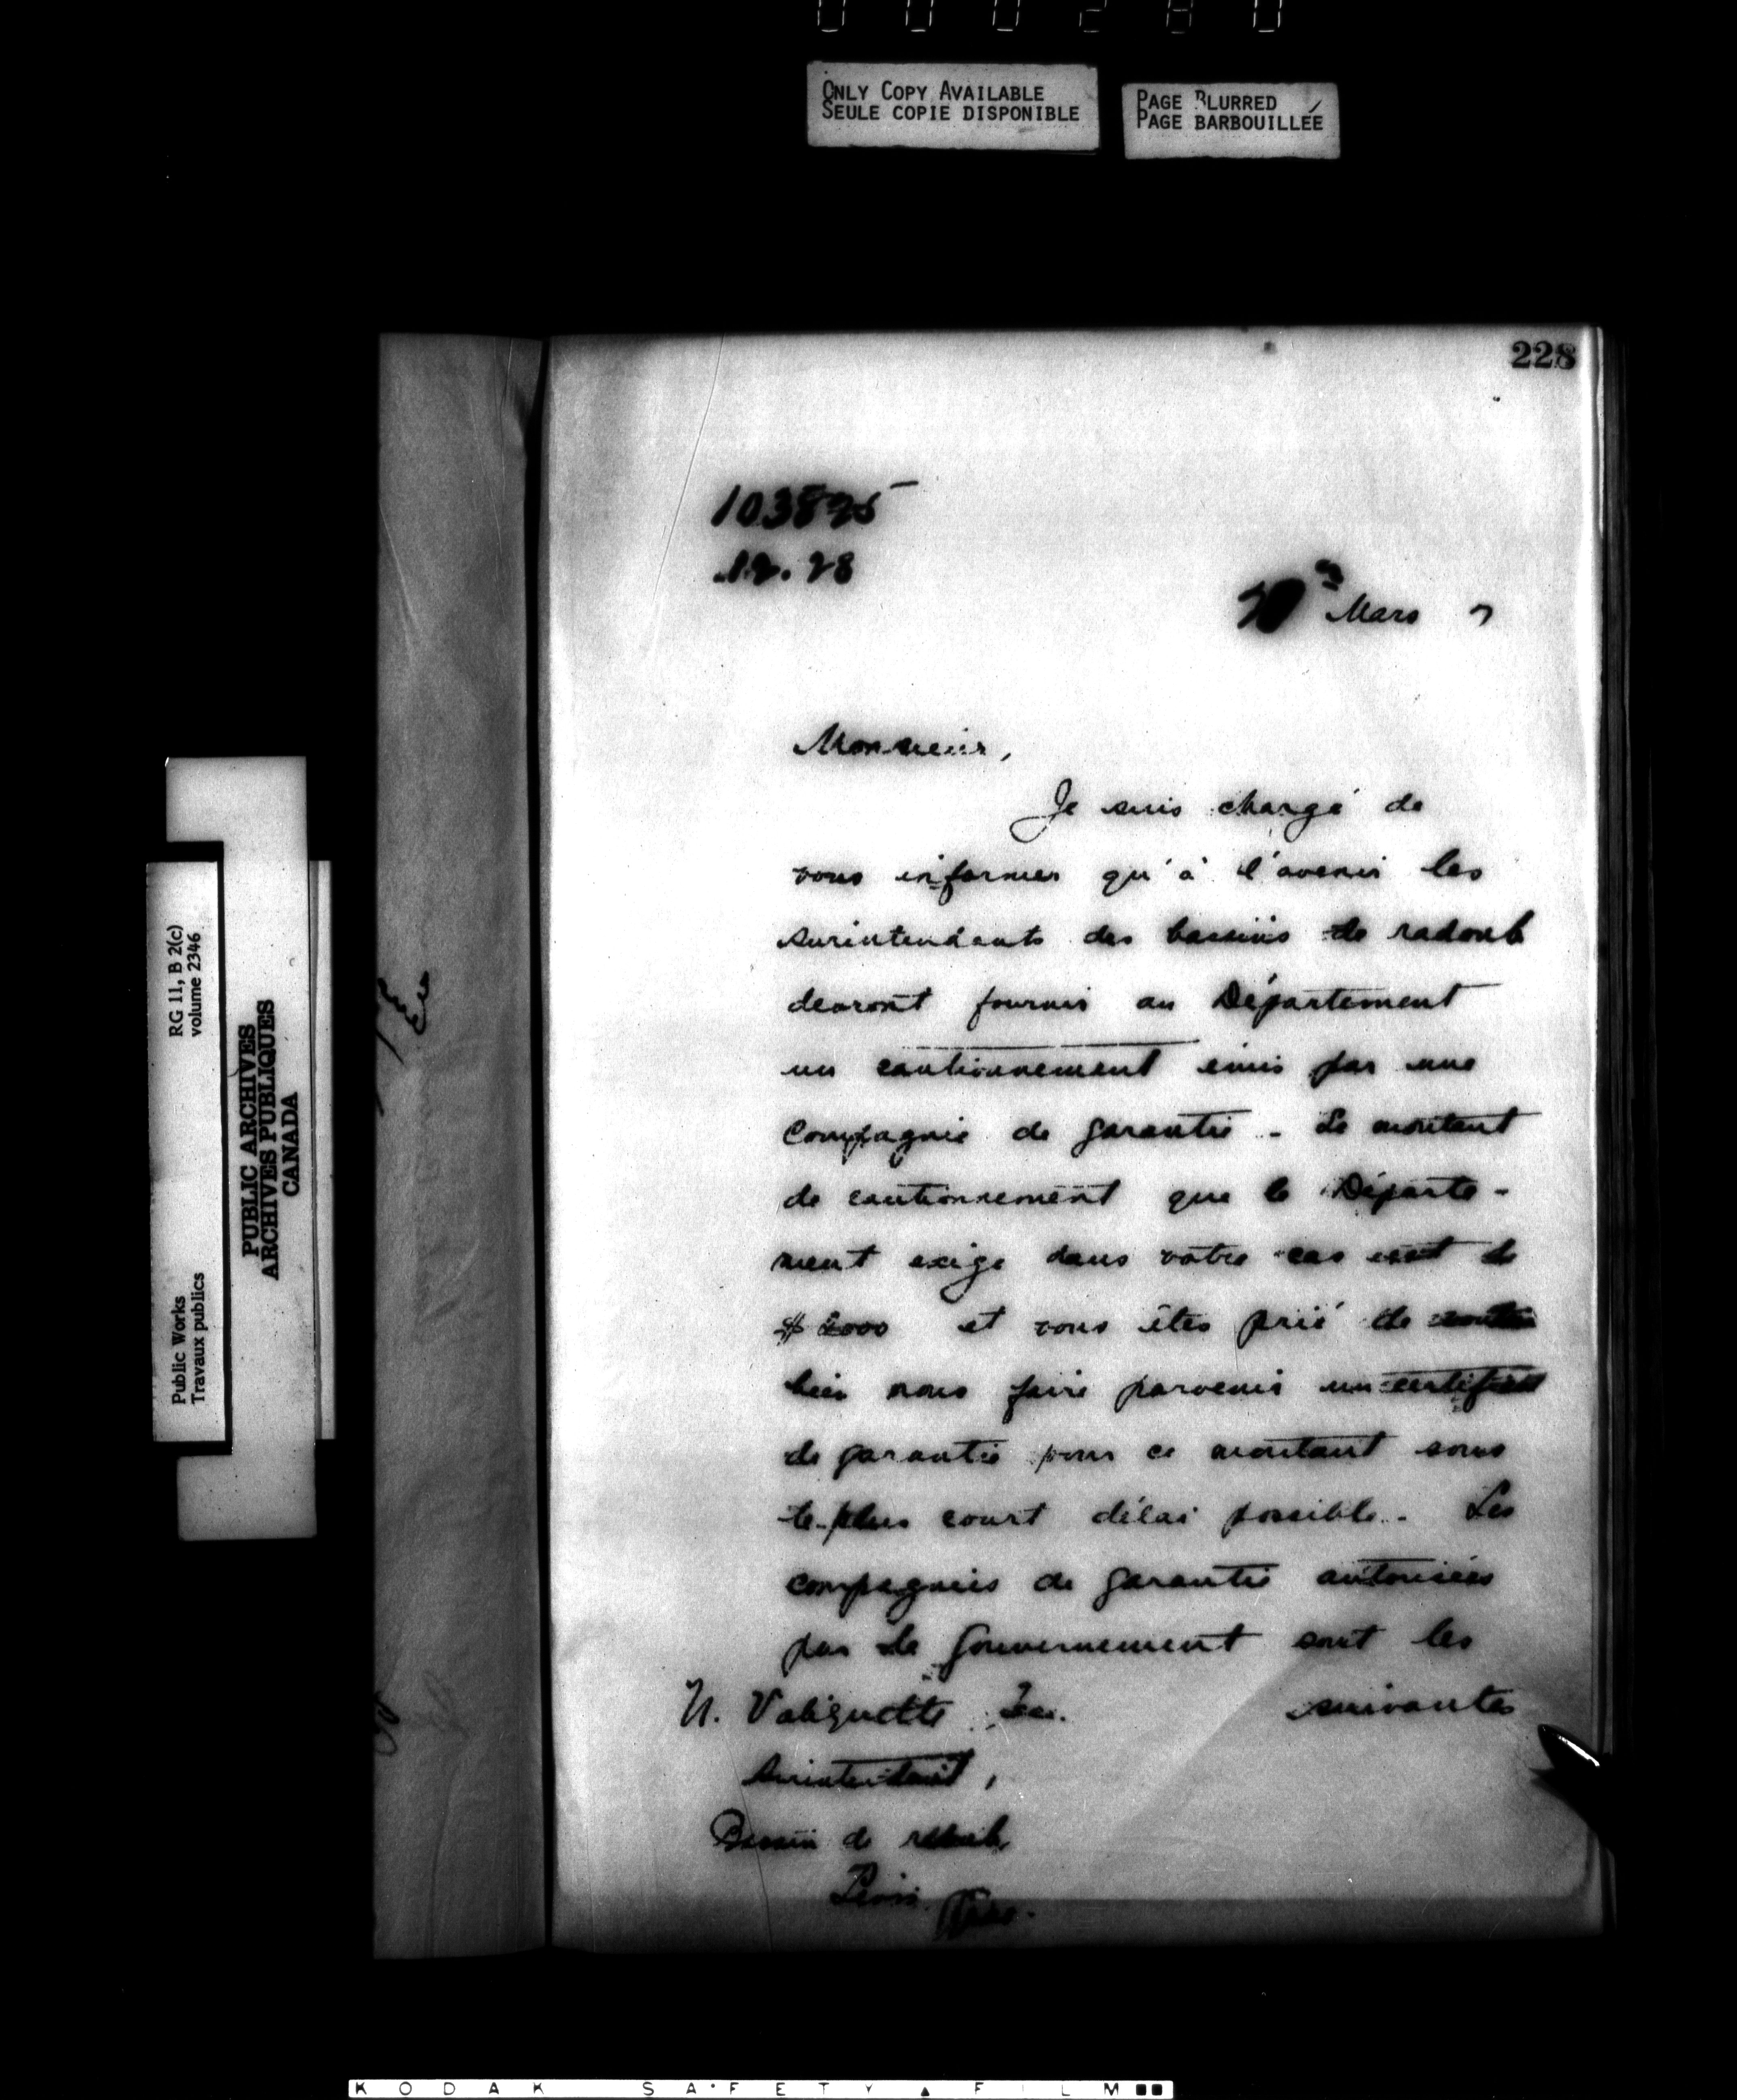 000280
ONLY COPY AVAILABLE
SEULE COPIE DISPONIBLE
PAGE BLURRED
PAGE BARBOUILLÉE
228
Mars 7
Monsieur,
Je suis chargé de
vous informer qu'à l'avenir les
surintendants des bassins de radoub
devront fournir au Département
un cautionnement émis par une
Compagnie de garantie. Le montant
de cautionnement que le Départe-
ment exige dans votre cas est de
$2000 et vous êtes prié de
bien nous faire parvenir un certificat
de garantie pour ce montant sous
le plus court délai possible. Les
compagnies de garantie autorisées
par le Gouvernement sont les
suivantes
U. Valiquette
Surintendant,
Bassin de radoub
Lévis
RG 11, B 2(c)
volume 2346
PUBLIC ARCHIVES
ARCHIVES PUBLIQUES
CANADA
Public Works
Travaux publics
KODAK SAFETY FILM